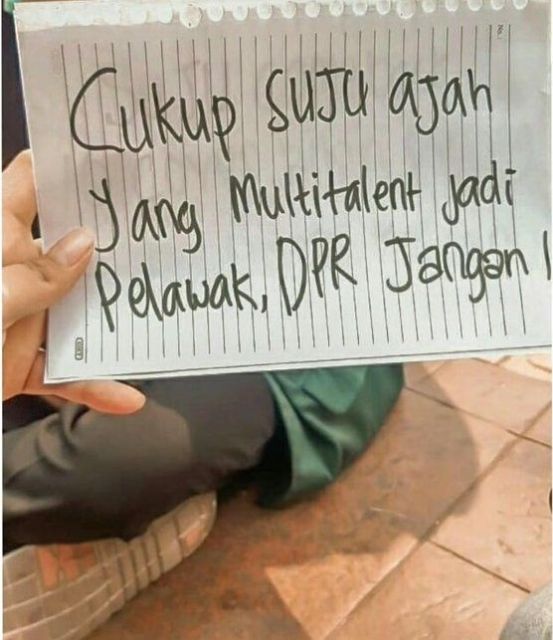 Cukup SUJU ajah
Yang Multitalent Jadi
Pelawak, DPR Jangan!
No.: